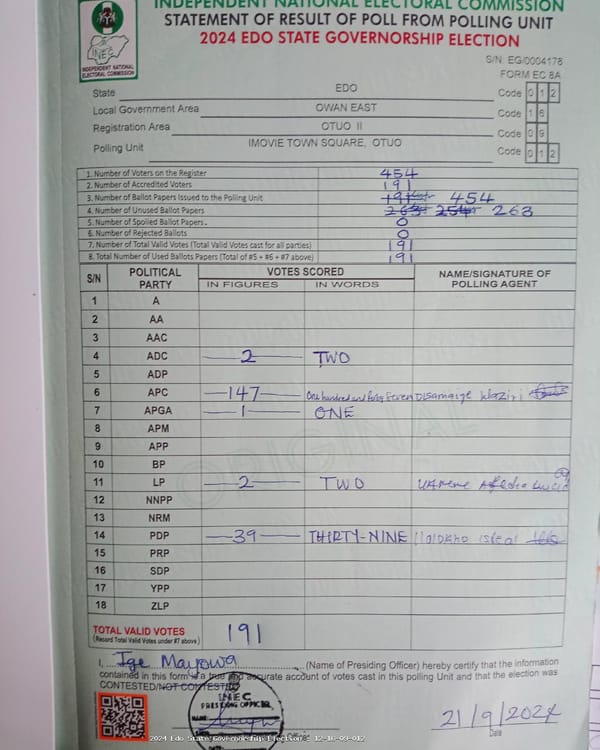 INDEPENDENT NATIONAL ELECTORAL COMMISSION
STATEMENT OF RESULT OF POLL FROM POLLING UNIT
2024 EDO STATE GOVERNORSHIP ELECTION
INEC
INDEPENDENT NATIONAL
ELECTORAL COMMISSION
S/N EG/0004178
FORM EC 8A
State EDO Code 0 1 2
Local Government Area OWAN EAST Code 1 6
Registration Area OTUO II Code 0 9
Polling Unit IMOVIE TOWN SQUARE, OTUO Code 0 1 2
1. Number of Voters on the Register 454
2. Number of Accredited Voters 191
3. Number of Ballot Papers Issued to the Polling Unit 191 454
4. Number of Unused Ballot Papers 263 254 263
5. Number of Spoiled Ballot Papers. 0
6. Number of Rejected Ballots 0
7. Number of Total Valid Votes (Total Valid Votes cast for all parties) 191
8. Total Number of Used Ballots Papers (Total of #5 + #6 + #7 above) 191
S/N POLITICAL PARTY VOTES SCORED NAME/SIGNATURE OF POLLING AGENT
IN FIGURES IN WORDS
1 A
2 AA
3 AAC
4 ADC 2 TWO
5 ADP
6 APC 147 One hundred and forty seven Waziri
7 APGA 1 ONE
8 APM
9 APP
10 BP
11 LP 2 TWO
12 NNPP
13 NRM
14 PDP 39 THIRTY-NINE
15 PRP
16 SDP
17 YPP
18 ZLP
ORIGINAL
TOTAL VALID VOTES 191
(Record Total Valid Votes under #7 above)
I, Ige Mayowa (Name of Presiding Officer) hereby certify that the information
contained in this form is a true and accurate account of votes cast in this polling Unit and that the election was
CONTESTED/NOT CONTESTED
INEC
PRESIDING OFFICER
NAME
DATE
21/9/2024
Date
2024 Edo State Governorship Election - 12-16-09-012